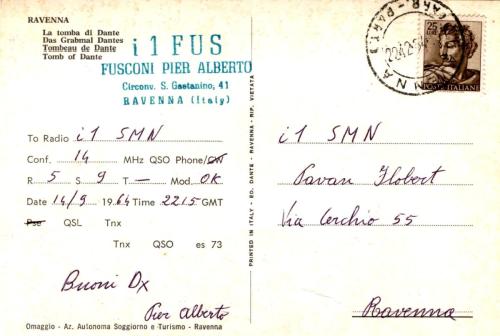 RAVENNA
La tomba di Dante
Das Grabmal Dantes
Tombeau de Dante
Tomb of Dante
i 1 FUS
FUSCONI PIER ALBERTO
Circonv. S. Gaetanino, 41
RAVENNA (Italy)
To Radio i1 SMN
Conf. 14 MHz QSO Phone/CW
R 5 S 9 T — Mod. OK
Date 14/9 1964 Time 2215 GMT
Pse QSL Tnx
Tnx QSO es 73
Buoni Dx
Pier Alberto
Omaggio - Az. Autonoma Soggiorno e Turismo - Ravenna
PRINTED IN ITALY - ED. DANTE - RAVENNA - RIP. VIETATA
25
POSTE ITALIANE
i1 SMN
Pavan Flobert
Via Cerchio 55
Ravenna